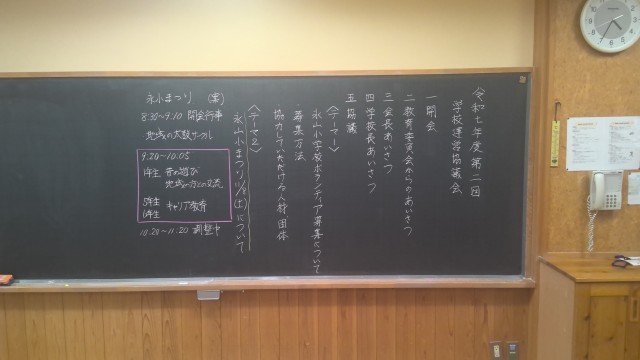 令和七年度第二回
学校運営協議会
一 開会
二 教育委員会からのあいさつ
三 会長あいさつ
四 学校長あいさつ
五 協議
〈テーマ1〉
永山小学校ボランティア募集について
・募集方法
協力していただける人材・団体
〈テーマ2〉
永小まつり(案)
8:30〜9:10 開会行事
地域の太鼓サークル
9:20〜10:05
1年生 昔の遊び
地域の方との交流
5年生
6年生 キャリア教育
10:20〜11:20 調整中